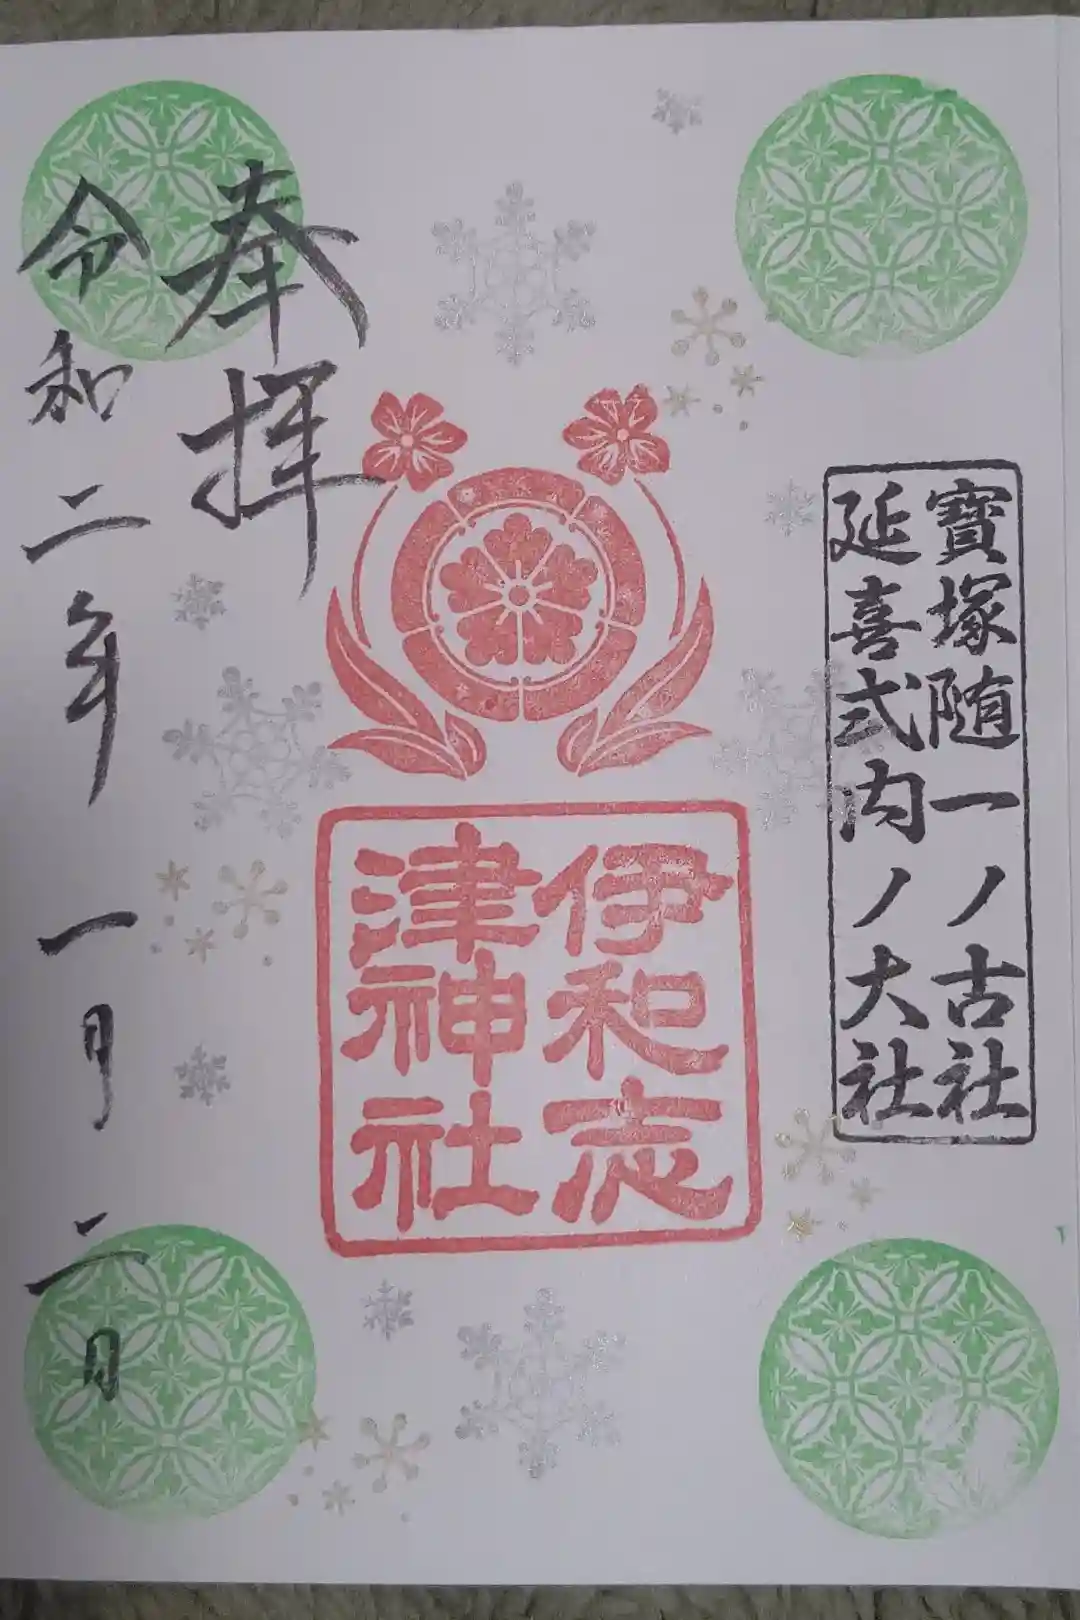 寶塚随一ノ古社
延喜式内ノ大社
伊和志
津神社
奉拝
令和二年一月二日